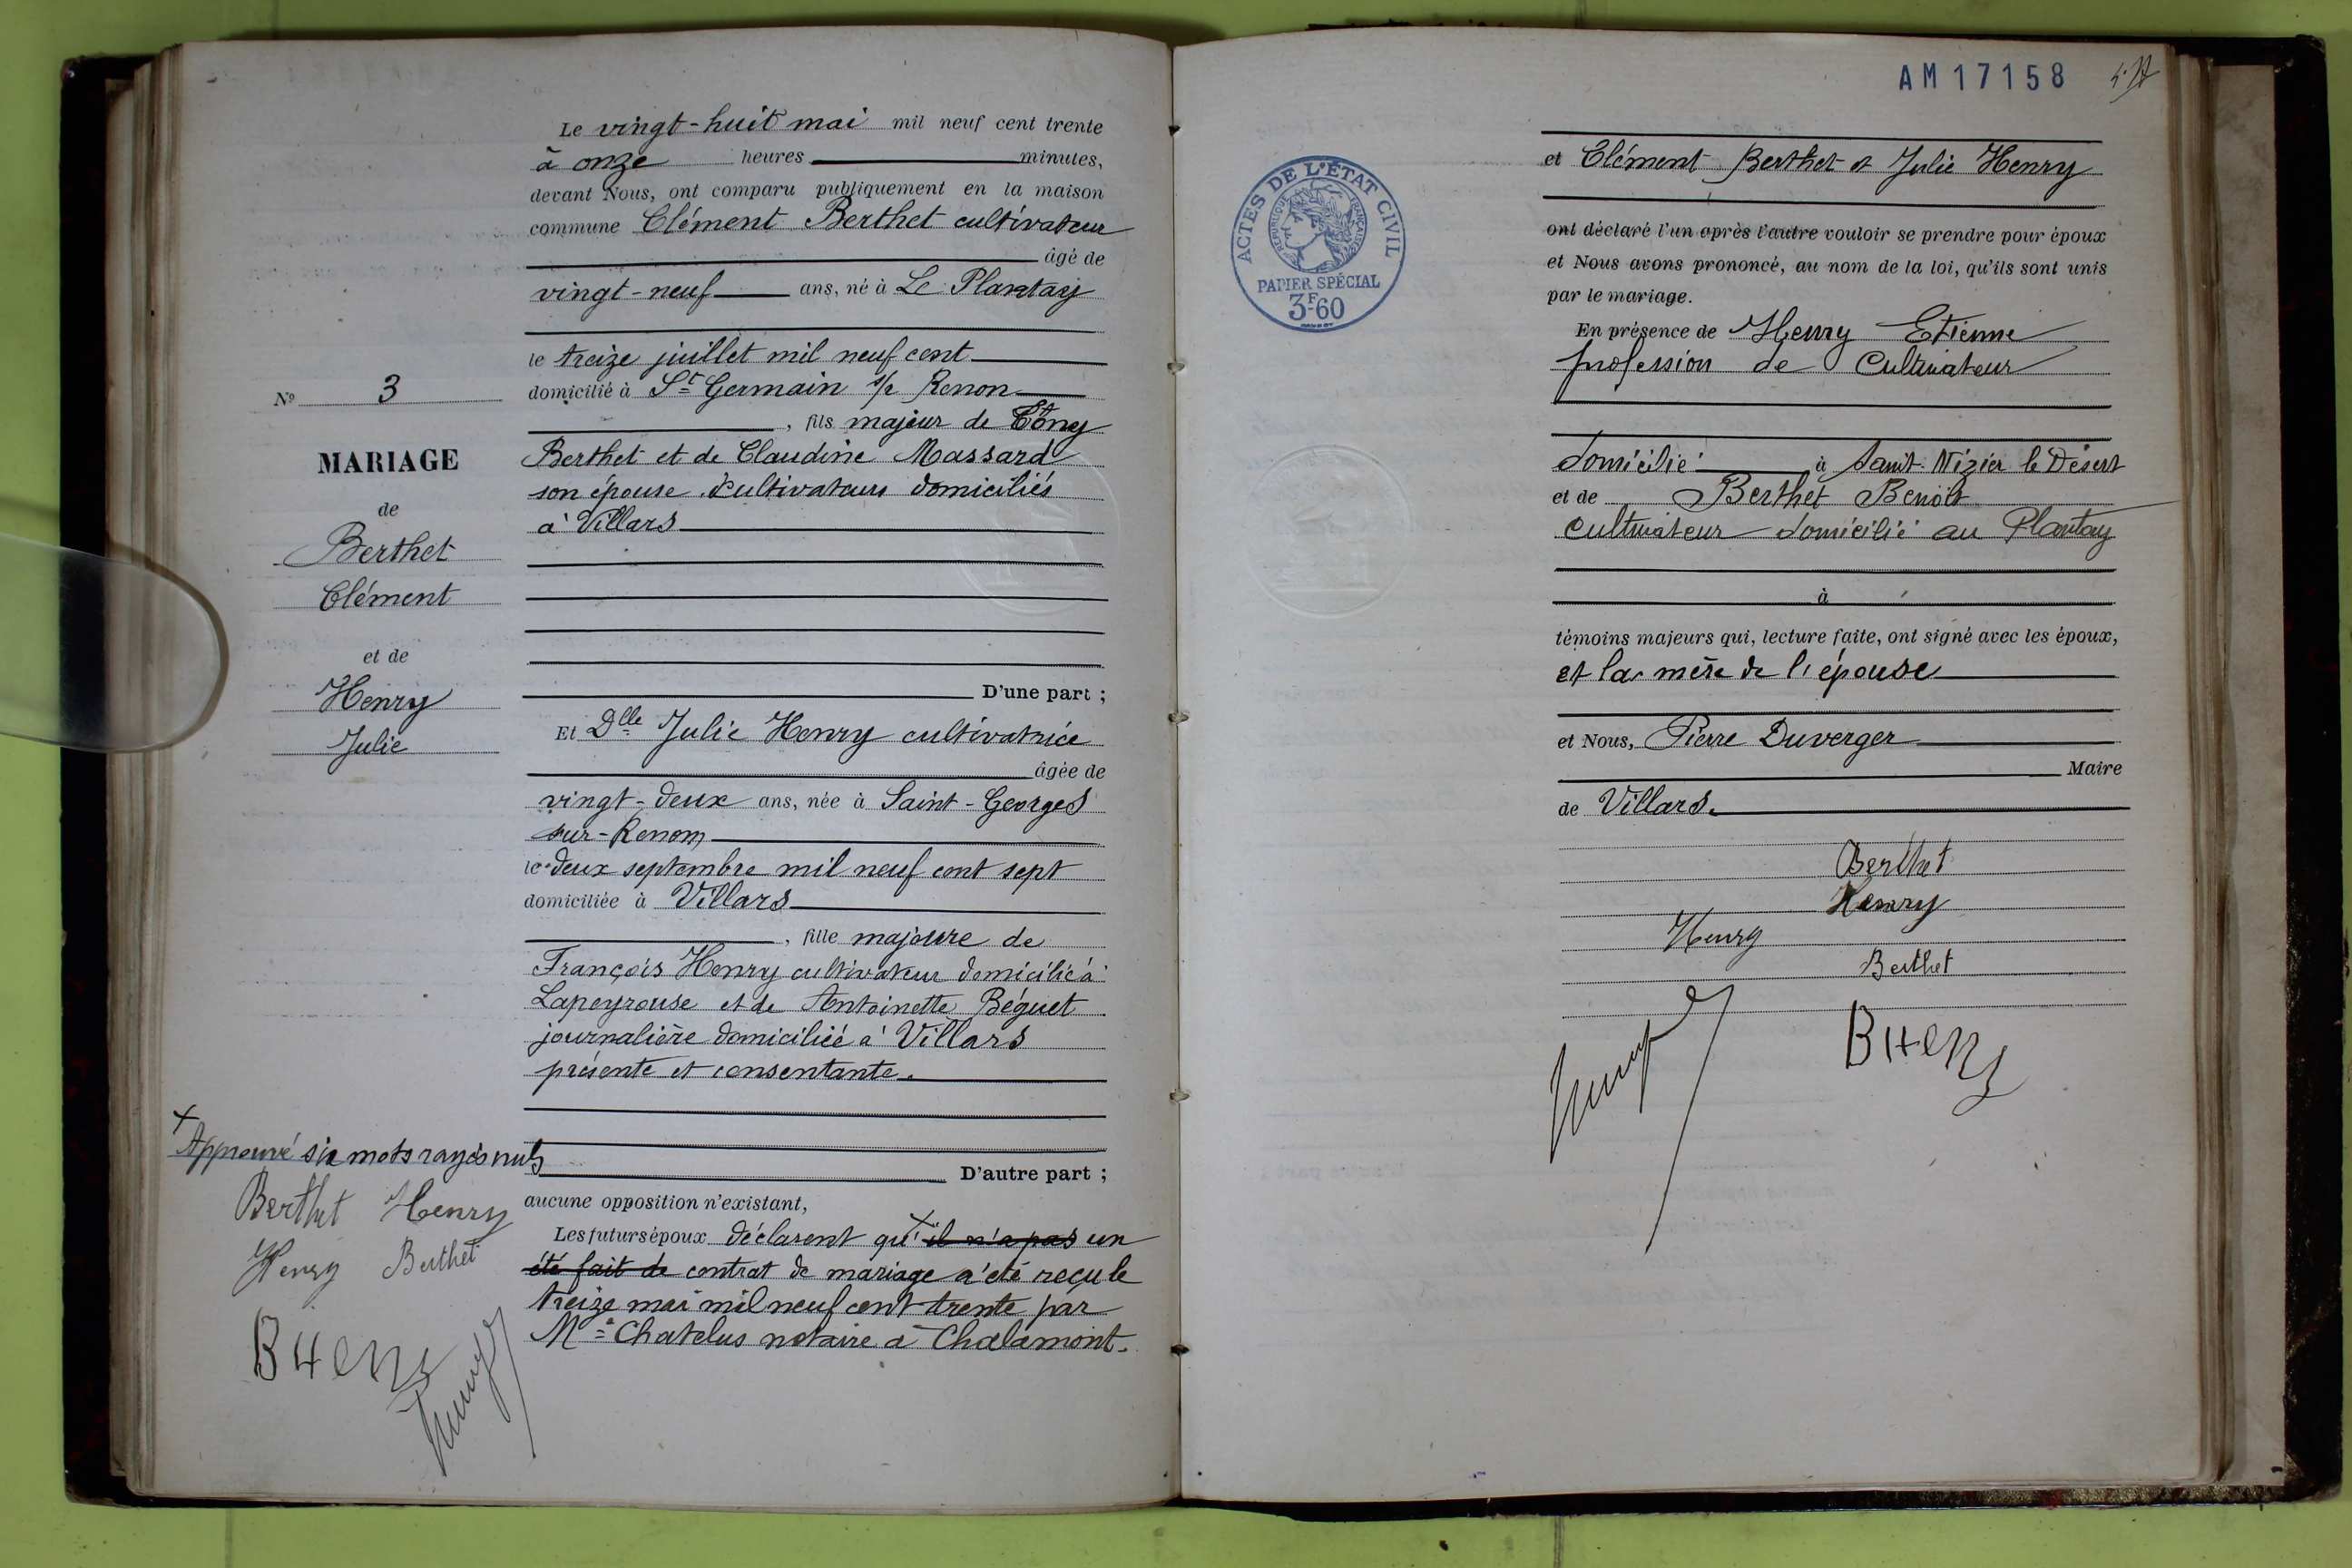 Le vingt-huit mai mil neuf cent trente
à onze heures minutes,
devant Nous, ont comparu publiquement en la maison
commune Clément Berthet cultivateur
âgé de
vingt-neuf ans, né à Le Plantay
le treize juillet mil neuf cent
domicilié à St Germain s/r Renon
, fils majeur de Tony
Berthet et de Claudine Massard
son épouse cultivateurs domiciliés
à Villars
D'une part ;
Et Dlle Julie Henry cultivatrice
âgée de
vingt-deux ans, née à Saint-Georges
sur-Renom
le deux septembre mil neuf cent sept
domiciliée à Villars
, fille majeure de
François Henry cultivateur domicilié à
Lapeyrouse et de Antoinette Béguet
journalière domiciliée à Villars
présente et consentante.
D'autre part ;
aucune opposition n'existant,
Les futurs époux déclarent qu' il n'a pas un
été fait de contrat de mariage a été reçu le
treize mai mil neuf cent trente par
Me Chatelus notaire à Chalamont.
No 3
MARIAGE
de
Berthet
Clément
et de
Henry
Julie
+
Approuvé six mots rayés nuls
Berthet Henry
Henry Berthet
AM 17158
ACTES DE L'ÉTAT CIVIL
RÉPUBLIQUE FRANÇAISE
PAPIER SPÉCIAL
3F60
et Clément Berthet et Julie Henry
ont déclaré l'un après l'autre vouloir se prendre pour époux
et Nous avons prononcé, au nom de la loi, qu'ils sont unis
par le mariage.
En présence de Henry Etienne
profession de Cultivateur
domicilié à Saint-Nizier le Désert
et de Berthet Benoît
cultivateur domicilié au Plantay
à
témoins majeurs qui, lecture faite, ont signé avec les époux,
et la mère de l'épouse
et Nous, Pierre Duverger
Maire
de Villars.
Berthet
Henry
Henry
Berthet